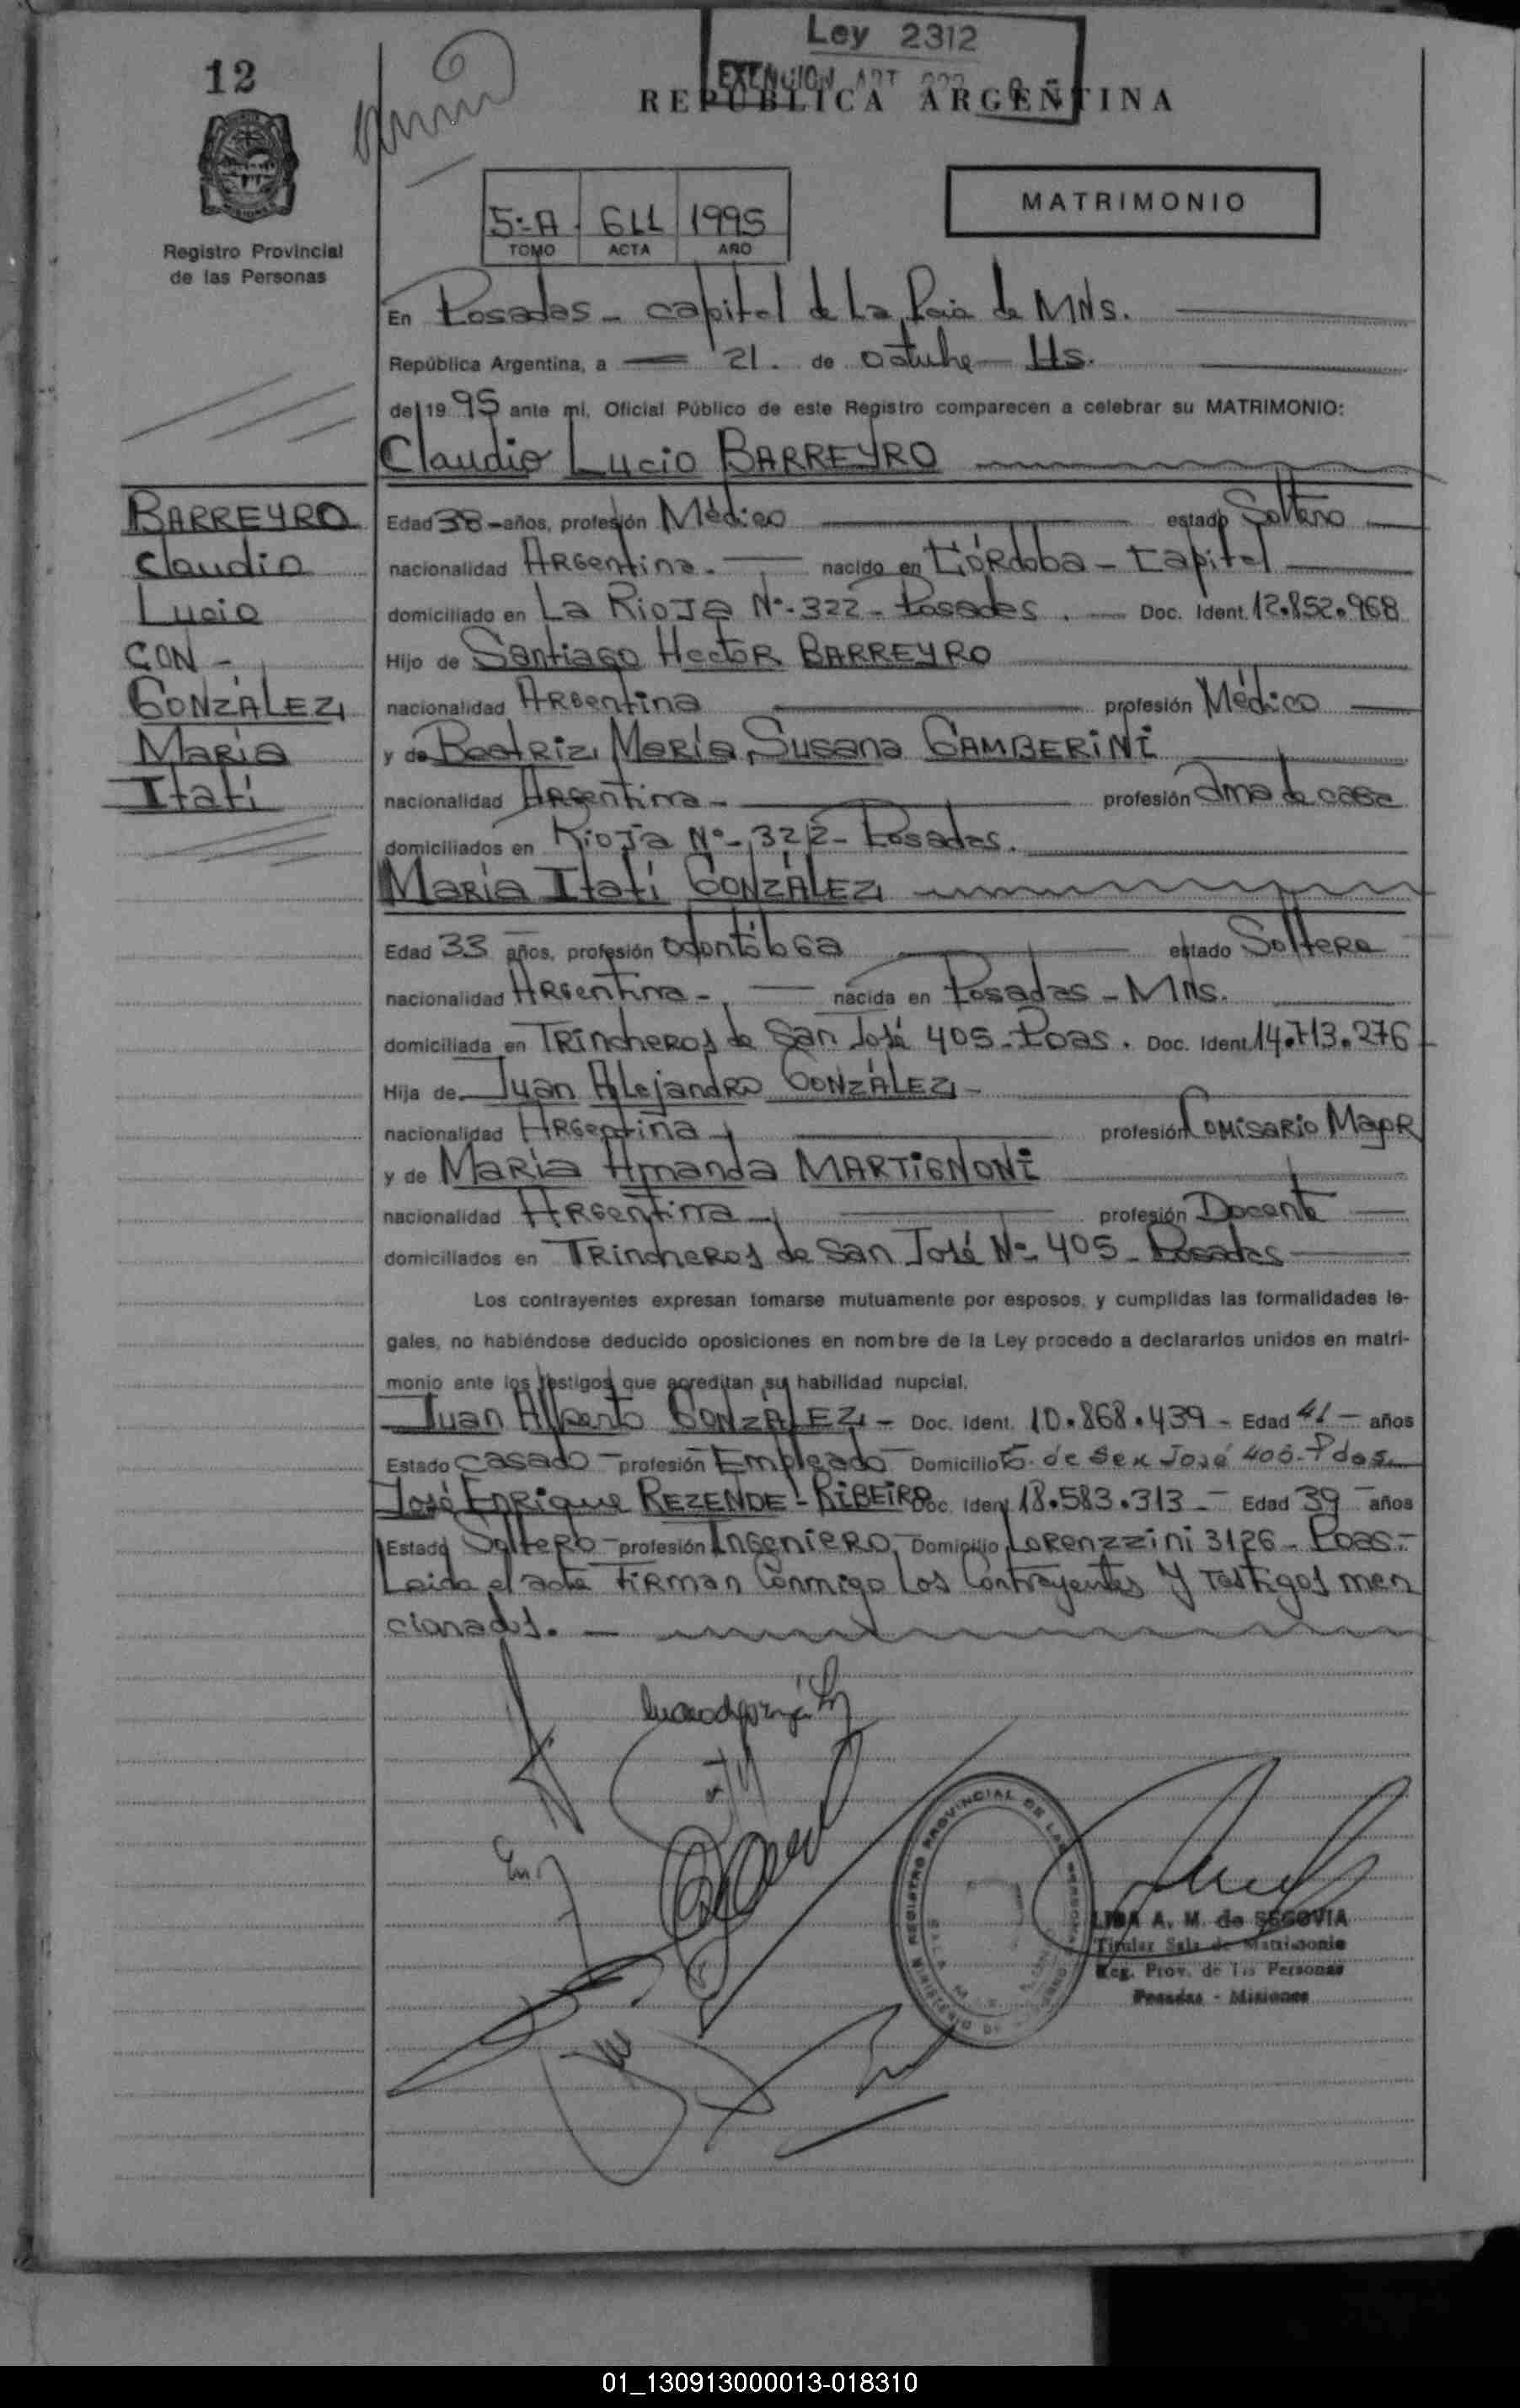 12
Ley 2312
EXENCION ART
REPUBLICA ARGENTINA
MATRIMONIO
5:-A 611 1995
TOMO ACTA AÑO
Registro Provincial
de las Personas
En Posadas - capital de La Pcia de MNS.
República Argentina, a 21. de octubre
de 19 95 ante mí, Oficial Público de este Registro comparecen a celebrar su MATRIMONIO:
Claudio Lucio BARREYRO
BARREYRO
Claudio
Lucio
CON -
GONZÁLEZ
María
Itatí
Edad 38 - años, profesión Médico estado Soltero
nacionalidad Argentina. nacido en Córdoba - Capital
domiciliado en La Rioja Nº- 322 - Posadas. Doc. Ident. 12.852.968
Hijo de Santiago Hector BARREYRO
nacionalidad Argentina profesión Médico
y de Beatriz María Susana GAMBERINI
nacionalidad Argentina - profesión Ama de casa
domiciliados en Rioja Nº- 322 - Posadas.
María Itatí GONZÁLEZ
Edad 33 años, profesión odontóloga estado Soltera
nacionalidad Argentina - nacida en Posadas - MNS.
domiciliada en Trincheros de San José 405 - Pdas. Doc. Ident. 14.713.276
Hija de Juan Alejandro GONZÁLEZ -
nacionalidad Argentina profesión Comisario Mayor
y de María Amanda MARTIGNONI
nacionalidad Argentina profesión Docente
domiciliados en Trincheros de San José Nº- 405 - Posadas
Los contrayentes expresan tomarse mutuamente por esposos, y cumplidas las formalidades le-
gales, no habiéndose deducido oposiciones en nombre de la Ley procedo a declararlos unidos en matri-
monio ante los testigos que acreditan su habilidad nupcial.
Juan Alberto GONZÁLEZ - Doc. Ident. 10.868.439 - Edad 41 - años
Estado Casado - profesión Empleado - Domicilio T. de San José 405 - Pdas.
José Enrique REZENDE - RIBEIRO Doc. Ident. 18.583.313 - Edad 39 - años
Estado Soltero - profesión Ingeniero - Domicilio Lorenzzini 3126 - Pdas.-
Leida el acta Firman Conmigo Los Contrayentes Y Testigos men
cionados. -
REGISTRO PROVINCIAL DE LAS PERSONAS
LIDA A. M. de SEGOVIA
Titular Sala de Matrimonio
Reg. Prov. de las Personas
Posadas - Misiones
01_130913000013-018310